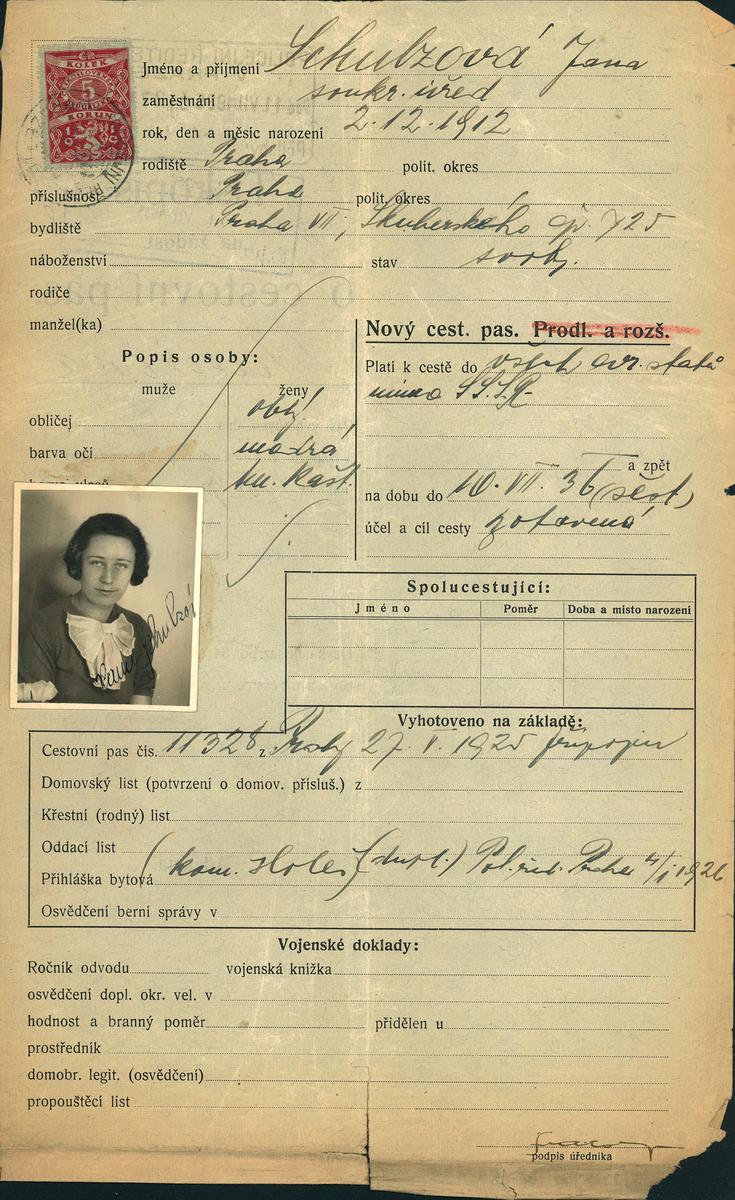 KOLEK
5
KORUN
Jméno a příjmení Schulzová Jana
zaměstnání soukr. úřed
rok, den a měsíc narození 2.12.1912
rodiště Praha polit. okres
příslušnost Praha polit. okres
bydliště Praha VII, čp. 725
náboženství stav svob.
rodiče
manžel(ka)
Nový cest. pas. Prodl. a rozš.
Platí k cestě do všech evr. států
mimo S.S.S.R.
Popis osoby:
muže ženy
obličej oblý
barva očí modrá
tm. kašt.
a zpět
na dobu do 10. VII. 36 (šest)
účel a cíl cesty zotavená
Jana Schulzová
Spolucestující:
Jméno Poměr Doba a místo narození
Vyhotoveno na základě:
Cestovní pas čís. 11328 z Prahy 27. V. 1925
Domovský list (potvrzení o domov. přísluš.) z
Křestní (rodný) list
Oddací list
Přihláška bytová kom. Pol. řed. Praha 4/I 1926
Osvědčení berní správy v
Vojenské doklady:
Ročník odvodu vojenská knížka
osvědčení dopl. okr. vel. v
hodnost a branný poměr přidělen u
prostředník
domobr. legit. (osvědčení)
propouštěcí list
podpis úředníka